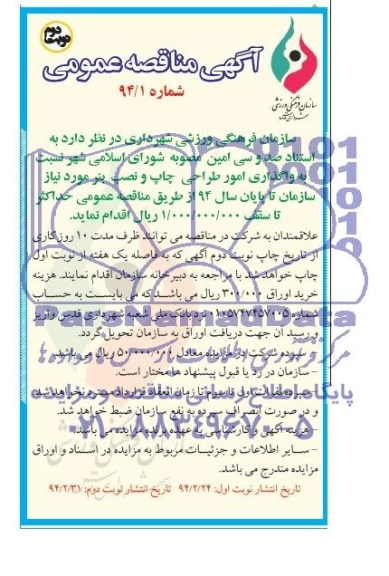 نوبت دوم
آگهی مناقصه عمومی
شماره ۹۴/۱
سازمان فرهنگی ورزشی
سازمان فرهنگی ورزشی شهرداری در نظر دارد به
استناد صد و سی امین مصوبه شورای اسلامی شهر نسبت
به واگذاری امور طراحی چاپ و نصب بنر مورد نیاز
سازمان تا پایان سال ۹۴ از طریق مناقصه عمومی حداکثر
تا سقف ۱/۰۰۰/۰۰۰/۰۰۰ ریال اقدام نماید.
علاقمندان به شرکت در مناقصه می توانند ظرف مدت ۱۰ روز کاری
از تاریخ چاپ نوبت دوم آگهی که به فاصله یک هفته از نوبت اول
چاپ خواهد شد با مراجعه به دبیرخانه سازمان اقدام نمایند. هزینه
خرید اوراق ۳۰۰/۰۰۰ ریال می باشد که می بایست به حساب
شماره ۰۱۰۵۷۴۷۴۵۷۰۰۵ نزد بانک ملی شعبه شهرداری قدس واریز
و رسید آن جهت دریافت اوراق به سازمان تحویل گردد.
- سپرده شرکت در مزایده معادل ۵۰/۰۰۰/۰۰۰ ریال می باشد.
- سازمان در رد یا قبول پیشنهاد ها مختار است.
- سپرده نفرات اول تا سوم تا زمان انعقاد قرارداد مسترد نخواهد شد
و در صورت انصراف سپرده به نفع سازمان ضبط خواهد شد.
- هزینه آگهی و کارشناسی به عهده برنده مزایده می باشد.
- سایر اطلاعات و جزئیات مربوط به مزایده در اسناد و اوراق
مزایده مندرج می باشد.
تاریخ انتشار نوبت اول: ۹۴/۲/۲۴ تاریخ انتشار نوبت دوم: ۹۴/۲/۳۱
ParsNamadData
پایگاه اطلاع رسانی مناقصه و مزایده
۰۲۱-۸۸۳۴۹۶۷۰-۵